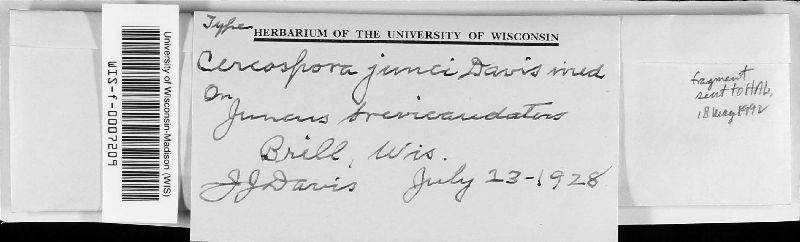 University of Wisconsin-Madison (WIS)
WIS-f-0007209
Type
HERBARIUM OF THE UNIVERSITY OF WISCONSIN
Cercospora junci Davis ined
On
Juncus brevicaudatus
Brill, Wis.
JJDavis July 23-1928
fragment
sent to HAL,
18 May 1992